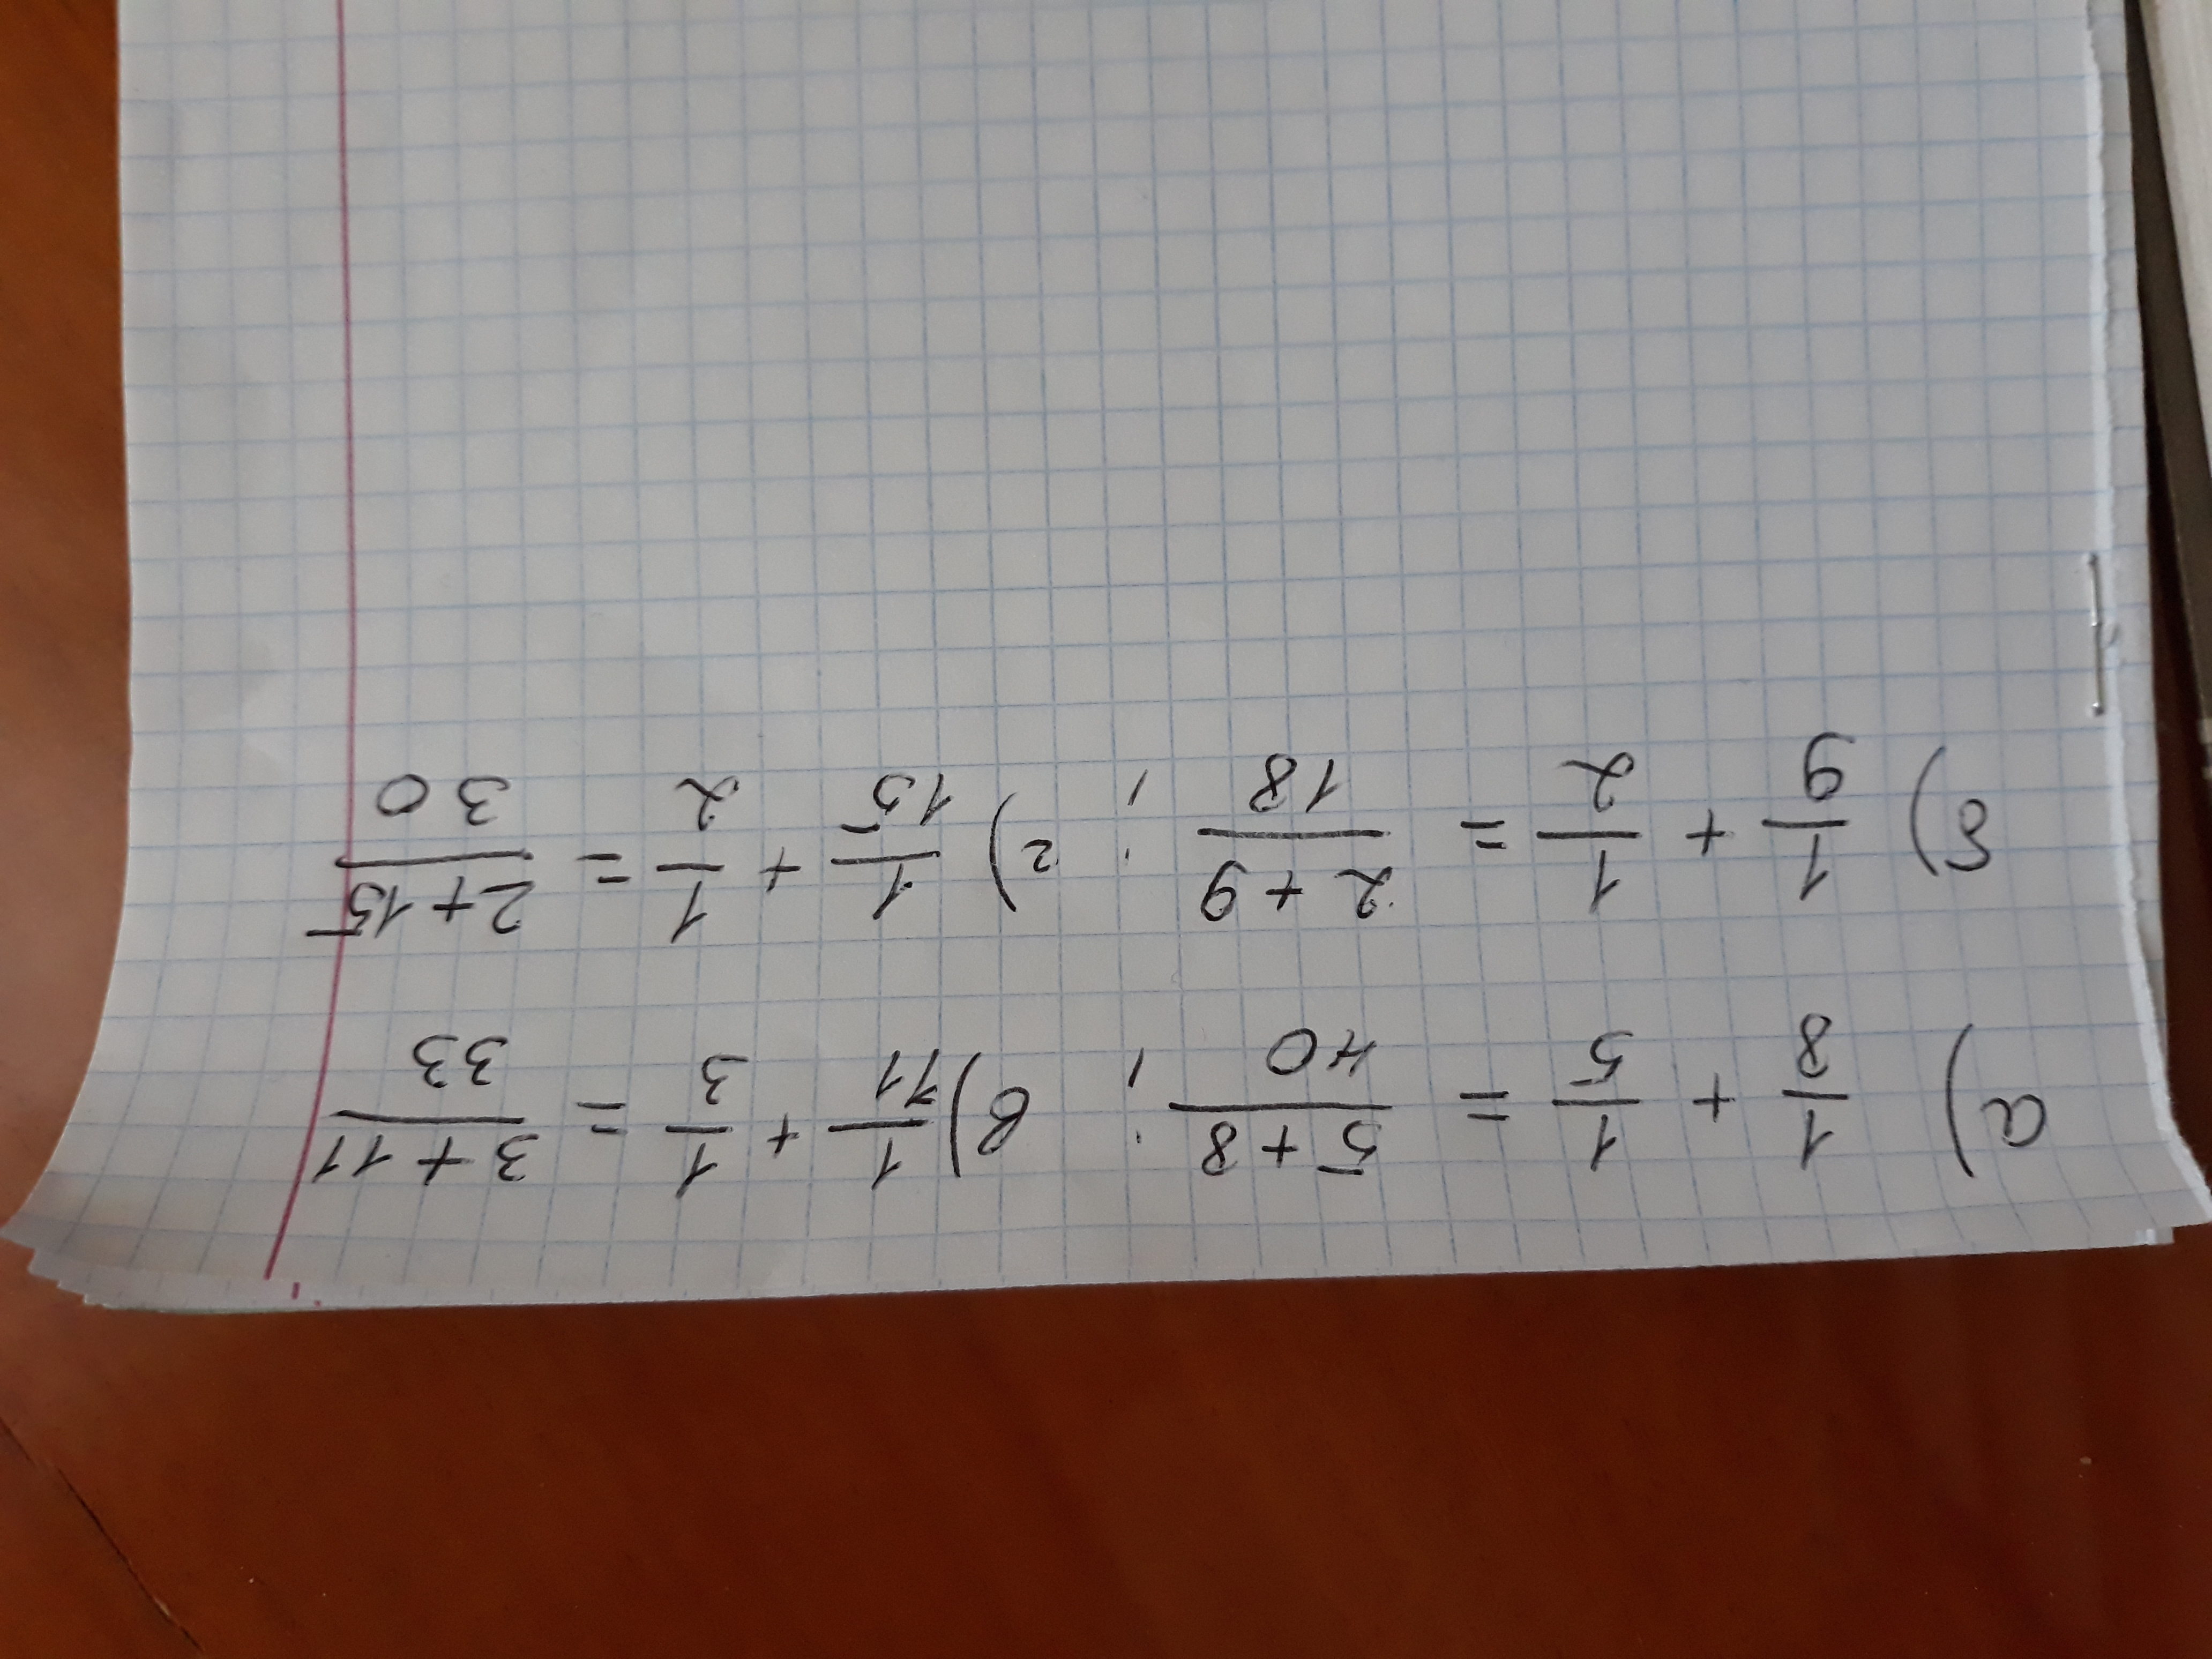 а) 1/8 + 1/5 = (5 + 8)/40 ; в) 1/11 + 1/3 = (3 + 11)/33
б) 1/9 + 1/2 = (2 + 9)/18 ; г) 1/15 + 1/2 = (2 + 15)/30